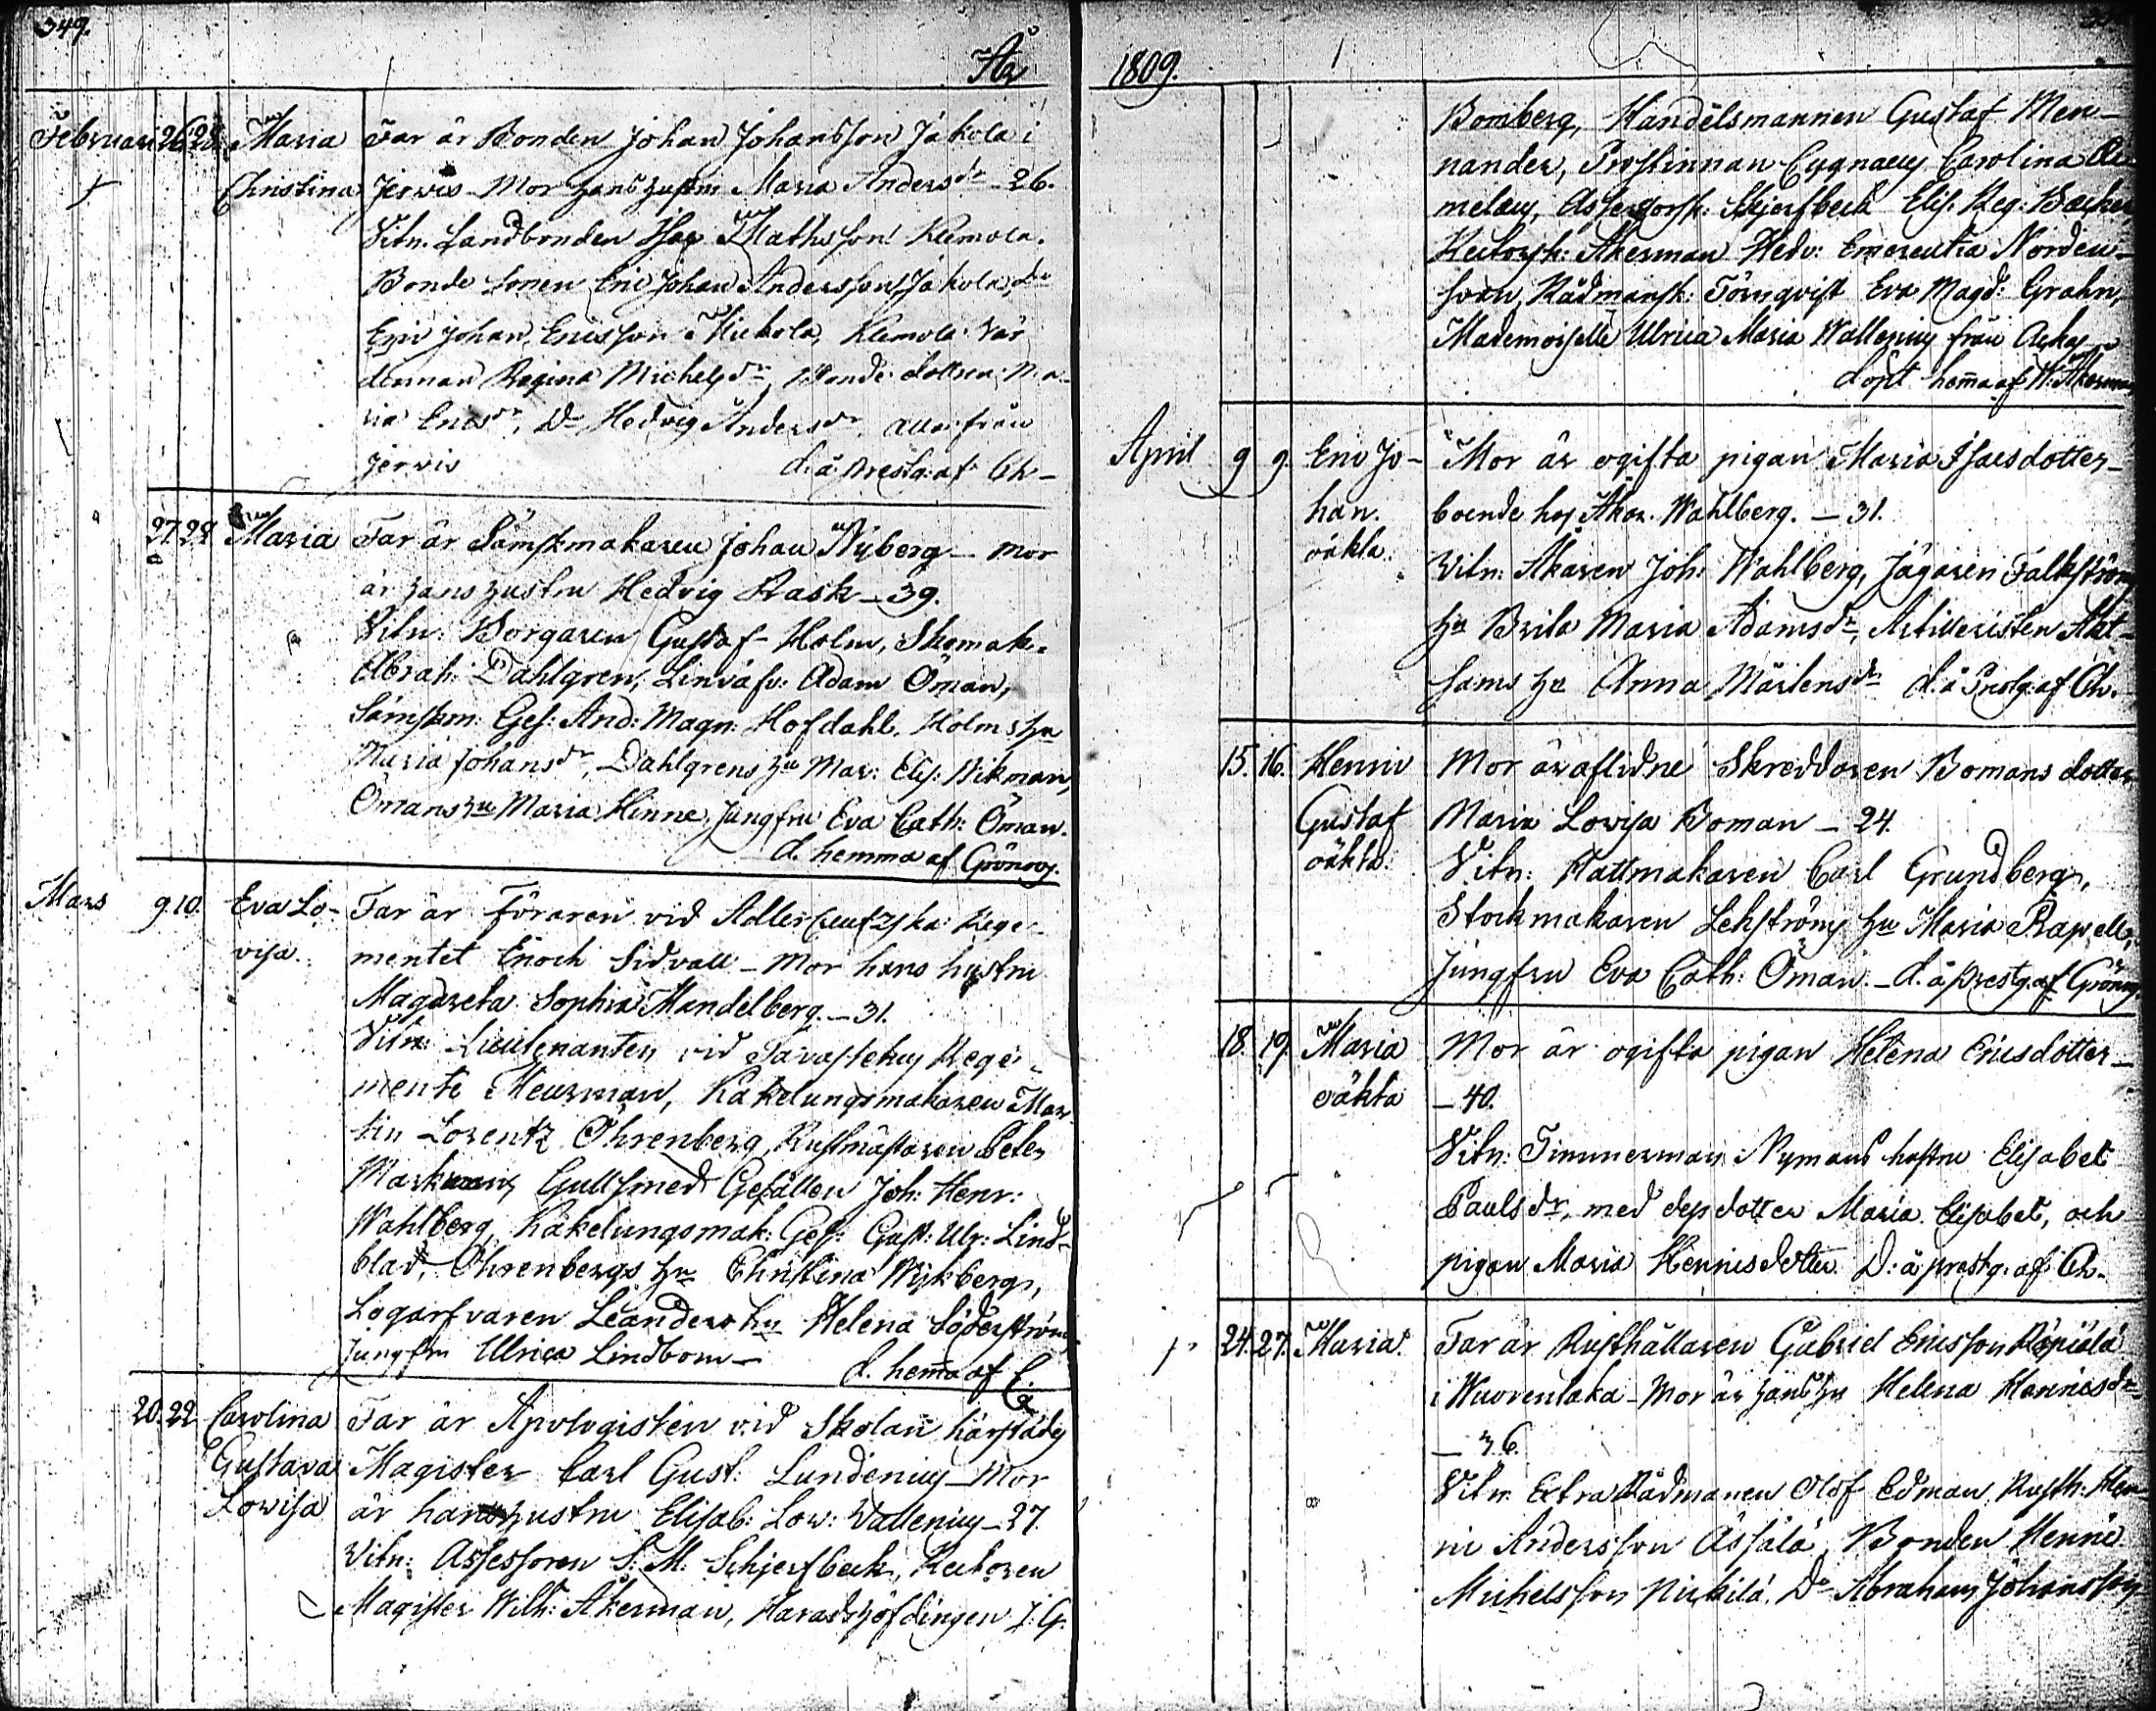 349.
År
Februari 26 28 Maria Far är Bonden Johan Johansson Jakola i
Christina Jervis - Mor hans hustru Maria Andersdr - 26.
Vitn. Landbonden Isac Mathsson Klemola.
Bonde Sonen Eric Johan Andersson Jakola, do
Eric Johan Ericsson Mickola, Klemola Vär
dinnan Regina Michelsdr, Bonde dottren Ma-
ria Ericsdr, Do Hedvig Andersdr, alla från
Jervis d. å prestg. af Ch-
27. 28 Maria Far är Sämskmakaren Johan Nyberg - Mor
är hans hustru Hedvig Rask - 39.
Vitn: Borgaren Gustaf Holm, Skomak.
Abrah: Dahlgren, Linväfv: Adam Öman,
Sämskm: Ges: And: Magn: Hofdahl. Holms hu
Maria Johansdr, Dahlgrens hu Mar: Elis: Bikman,
Ömans hu Maria Hinne, Jungfru Eva Cath: Öman.
d. hemma af Grönov.
Mars 9. 10. Eva Lo- Far är Föraren vid Adlercreutzska Rege-
visa. mentet Enoch Sidvall - Mor hans hustru
Magareta Sophia Mandelberg. - 31.
Vitn: Lieutenanten vid Tavastehus Rege-
mente Meurman, Kakelungsmakaren Mar
tin Lorentz Öhrenberg, Rustmästaren Peter
Gullsmed Gesällen Joh: Henr:
Wahlberg, Kakelungsmak: Ges: Gust: Ulr: Lind-
blad, Öhrenbergs hu Christina Wikberg,
Logarfvaren Leanders hu Helena Söderström
Jungfru Ullrica Lindbom - d. hemma af
20. 22. Carolina Far är Apologisten vid Skolan härstädes
Gustava Magister Carl Gust: Lundenius - Mor
Lowisa är hans hustru Elisab: Low: Wallenius - 27.
Vitn: Assessoren S: M: Schjerfbeck, Rectoren
Magister Wilh: Åkerman, Häradshöfdingen J: G:
1809.
Bomberg, Handelsmannen Gustaf Men-
nander, Prostinnan Cygnaeus Carolina
Assessorsk: Schjerfbeck Elis. Reg: Backer
Rectorsk: Åkerman Hedv: Emerentia Norden-
svan, Rådmansk: Törnqvist Eva Magd: Grahn,
Mademoiselle Ulrica Maria Wallenius från
döpt hemma af W: Åkerman
April 9 9. Eric Jo- Mor är ogifta pigan Maria Isacsdotter -
han. boende hos Åkar. Wahlberg. - 31.
oäkta. Vitn: Åkaren Joh: Wahlberg, Jägaren Falkströms
hu Brita Maria Adamsdr, Artilleristen
hu Anna Mårtensdr d. å Prestg. af Ch.
15. 16. Henric Mor är aflidne Skreddaren Bomans dotter
Gustaf Maria Lowisa Boman - 24.
oäkta. Vitn: Hattmakaren Carl Grundberg,
Stockmakaren Lekströms hu Maria Rapell,
Jungfru Eva Cath: Öman. - d. å prestg. af Grönov.
18. 19. Maria Mor är ogifta pigan Helena Ericsdotter -
oäkta - 40.
Vitn: Timmerman Nymans hustru Elisabet
Paulsdr, med dess dotter Maria Elisabet, och
pigan Maria Henricsdotter. D. å prestg. af Ch.
24. 27. Maria. Far är Rusthållaren Gabriel Ericsson
i Wuorenlaka - Mor är hans hu Helena Henricsdr
- 36.
Vitn. Extra Rådmannen Olof Edman, Rusth: Hen-
ric Andersson Ässälä, Bonden Henric
Michelsson Nickilä, Do Abraham Johansson